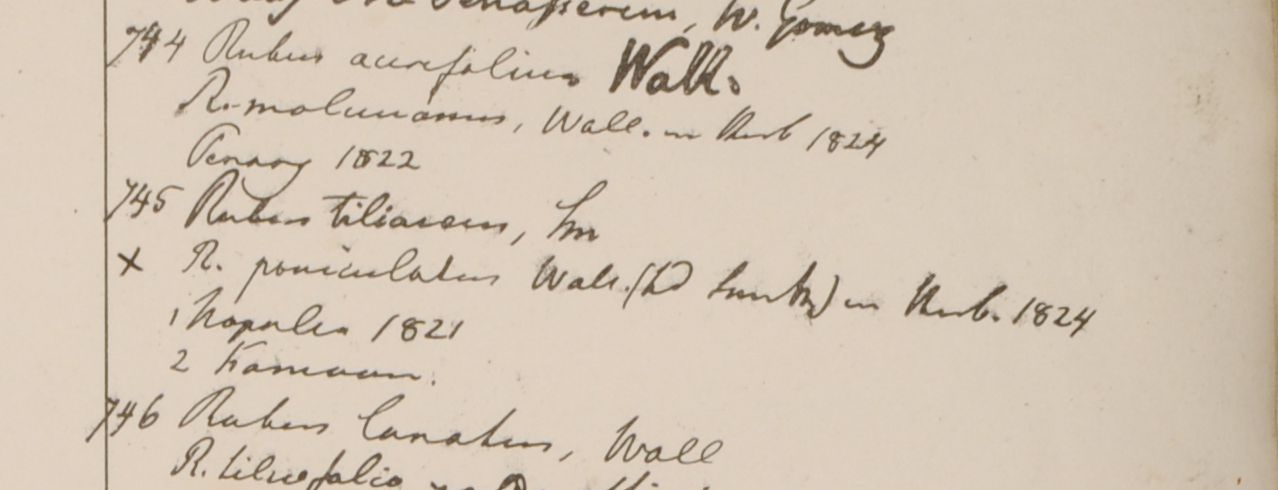 Tenasserim, W. Gomez
744 Rubus aurifolius Wall.
R. moluccanus, Wall. in Herb 1824
Penang 1822
745 Rubus tiliaceus, Sm
x R. paniculatus Wall. (hd Smith) in Herb. 1824
1 Napalia 1821
2 Kamaon.
746 Rubus lanatus, Wall
R. tiliaefolia